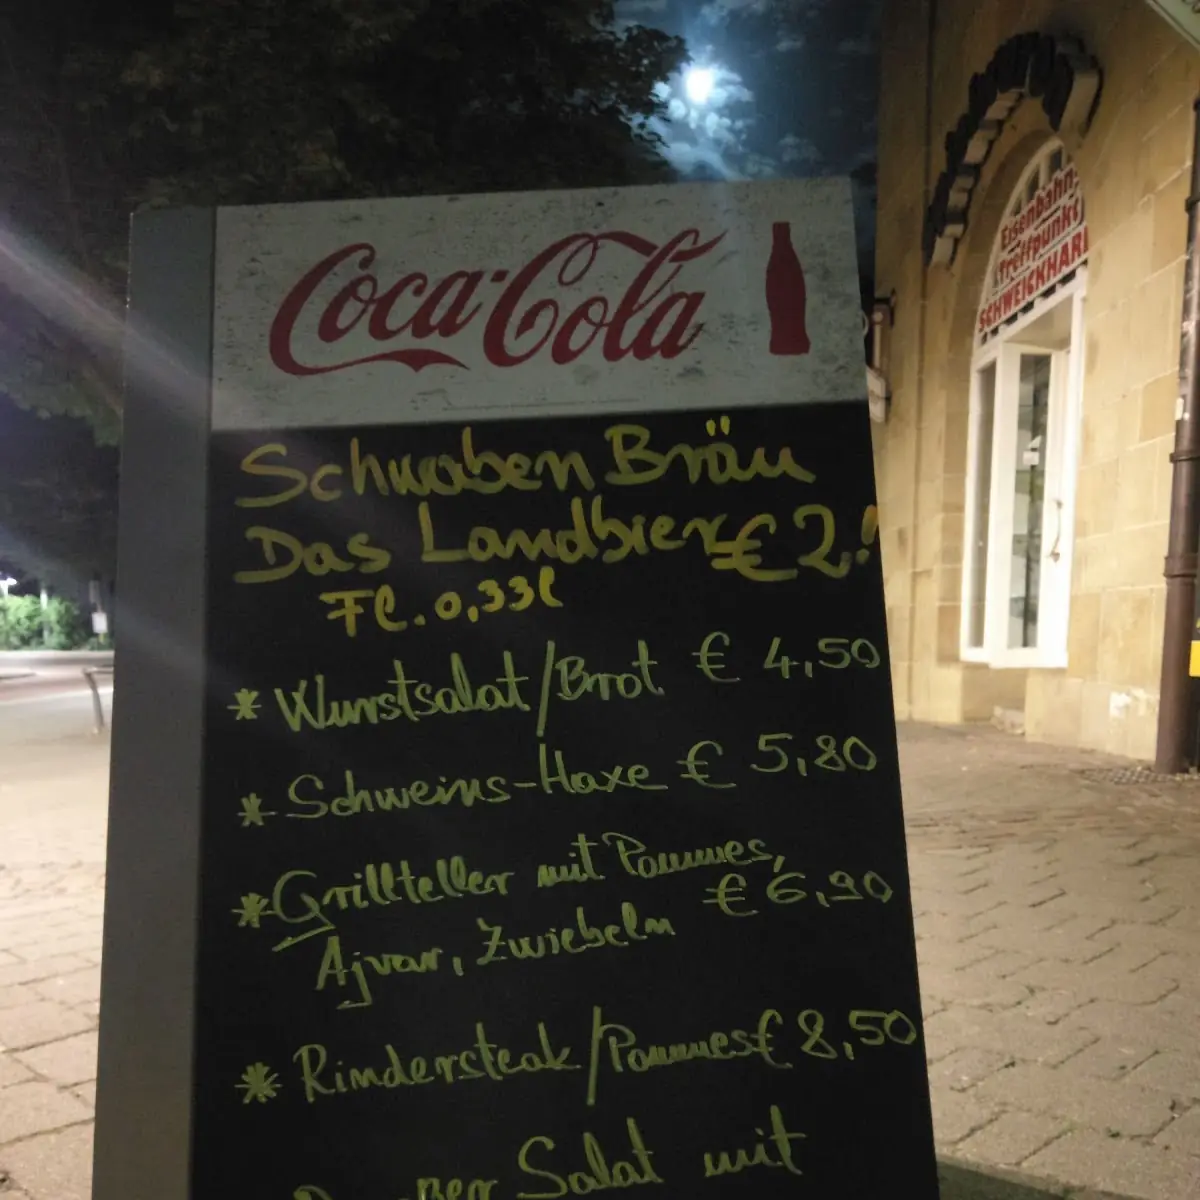 Coca-Cola
Schwaben Bräu
Das Landbier € 2.!
Fl. 0,33l
* Wurstsalat/Brot € 4,50
* Schweins-Haxe € 5,80
* Grillteller mit Pommes,
Ajvar, Zwiebeln € 6,90
* Rindersteak/Pommes € 8,50
Salat mit
Eisenbahn-
treffpunkt
SCHWEICKHARDT